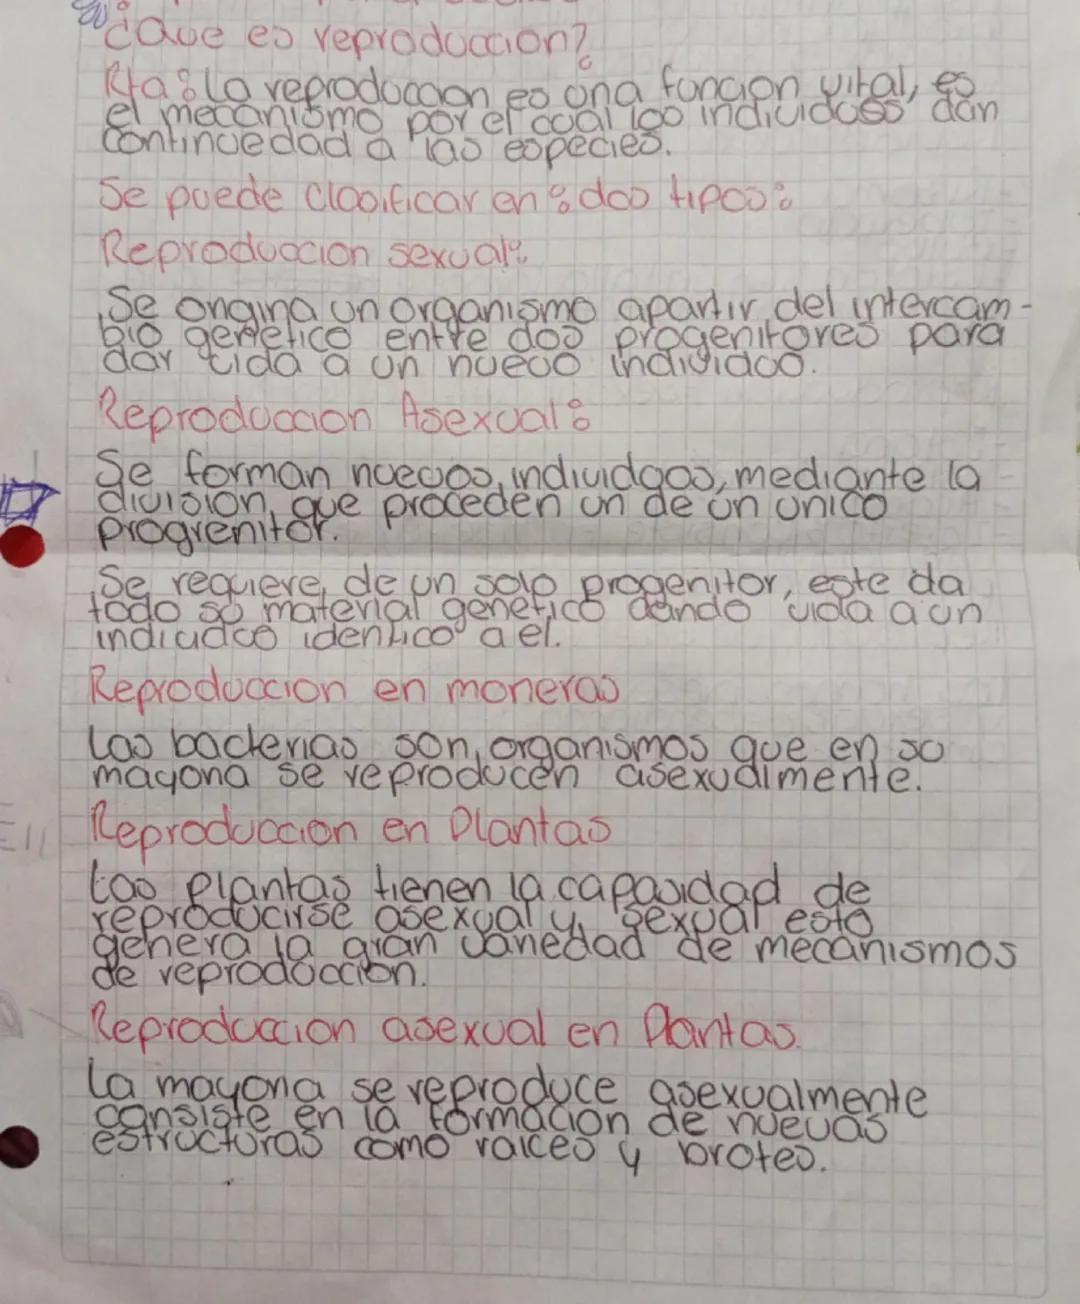 ¿Que es reproduccion?
Rta: La reproduccion es una funcion vital, es
el mecanismo por el cual los individuos dan
continuedad a las especies.
Se puede clasificar en: dos tipos:
Reproduccion sexual:
Se origina un organismo apartir del intercam-
bio genetico entre dos progenitores para
dar vida a un nuevo individuo.
Reproduccion Asexual:
Se forman nuevos individuos, mediante la
division, que proceden un de un unico
progrenitor.
Se requiere de un solo progenitor, este da
todo su material genetico dando vida a un
individuo identico a el.
Reproduccion en moneras
Las bacterias son organismos que en su
mayoria se reproducen asexualmente.
Reproduccion en Plantas
Las plantas tienen la capacidad de
reproducirse asexual y sexual esto
genera la gran variedad de mecanismos
de reproduccion.
Reproduccion asexual en Plantas.
La mayoria se reproduce asexualmente
consiste en la formacion de nuevas
estructuras como raices y brotes.